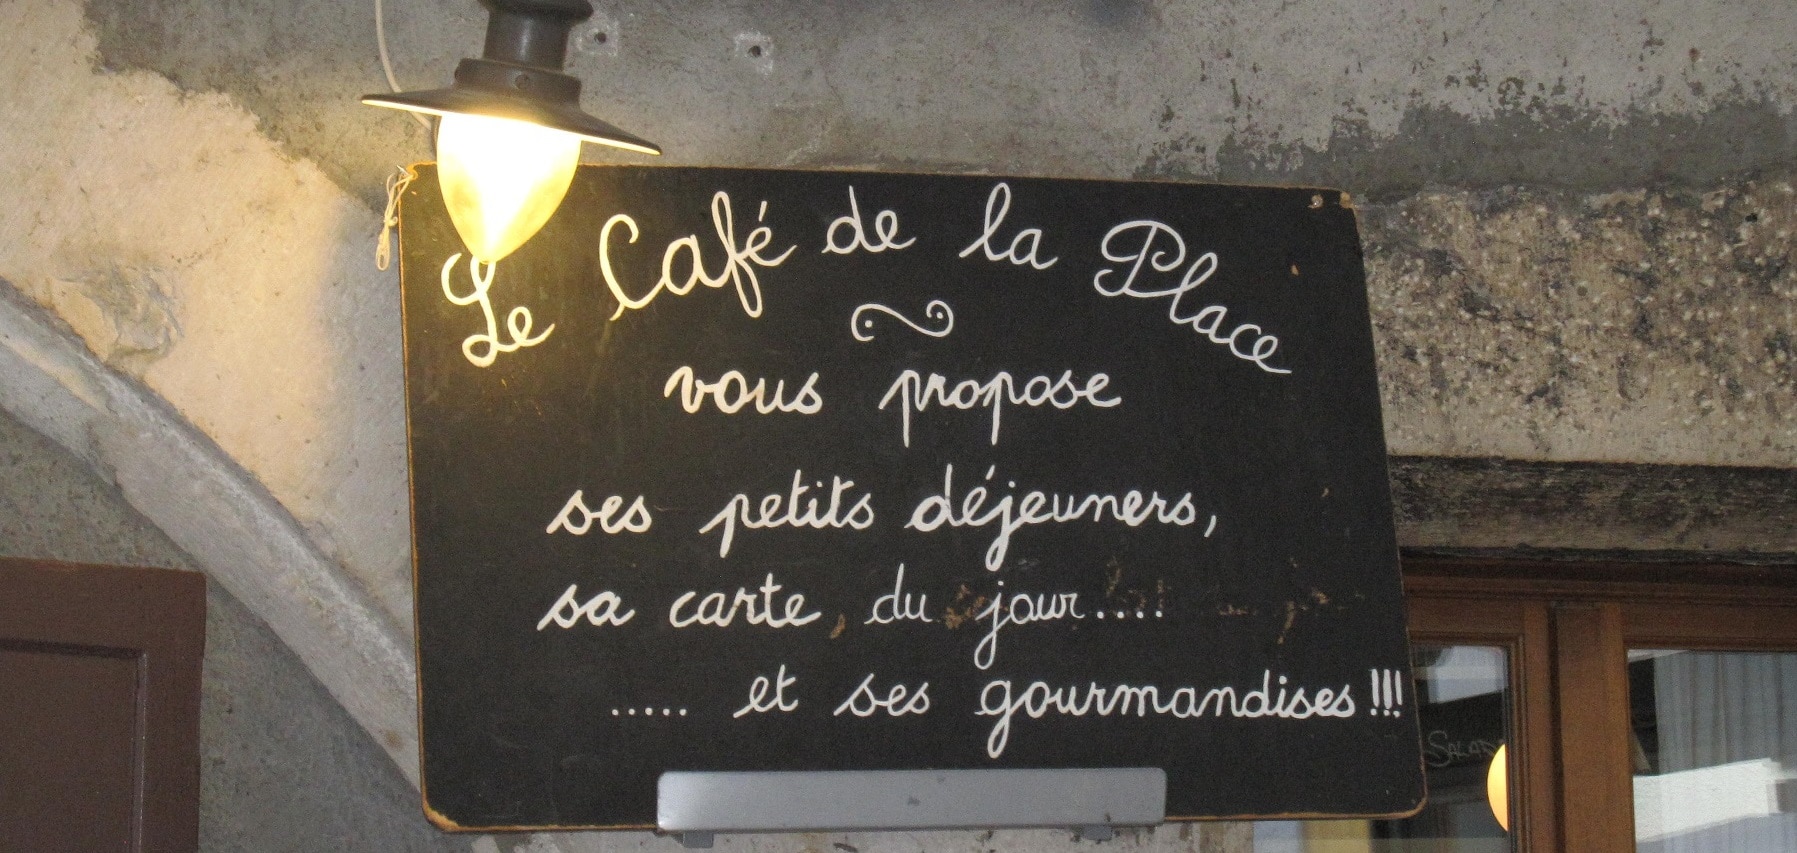 Le Café de la Place
vous propose
ses petits déjeuners,
sa carte, du jour....
..... et ses gourmandises !!!